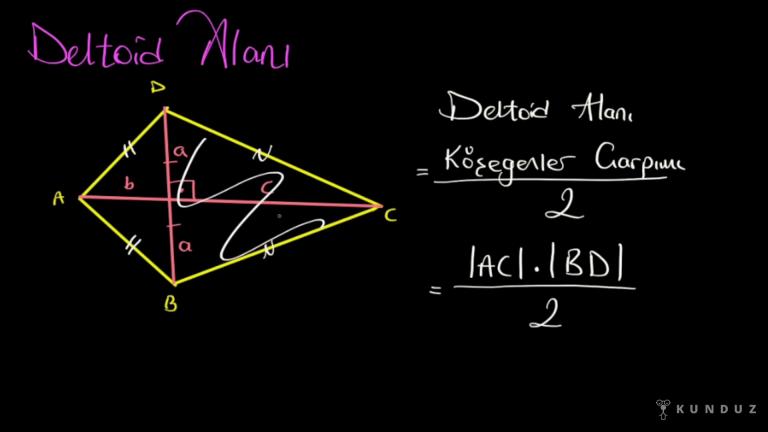 Deltoid Alanı
D
a
b
c
A
C
a
B
Deltoid Alanı
= Köşegenler Çarpımı
2
= |AC| . |BD|
2
KUNDUZ